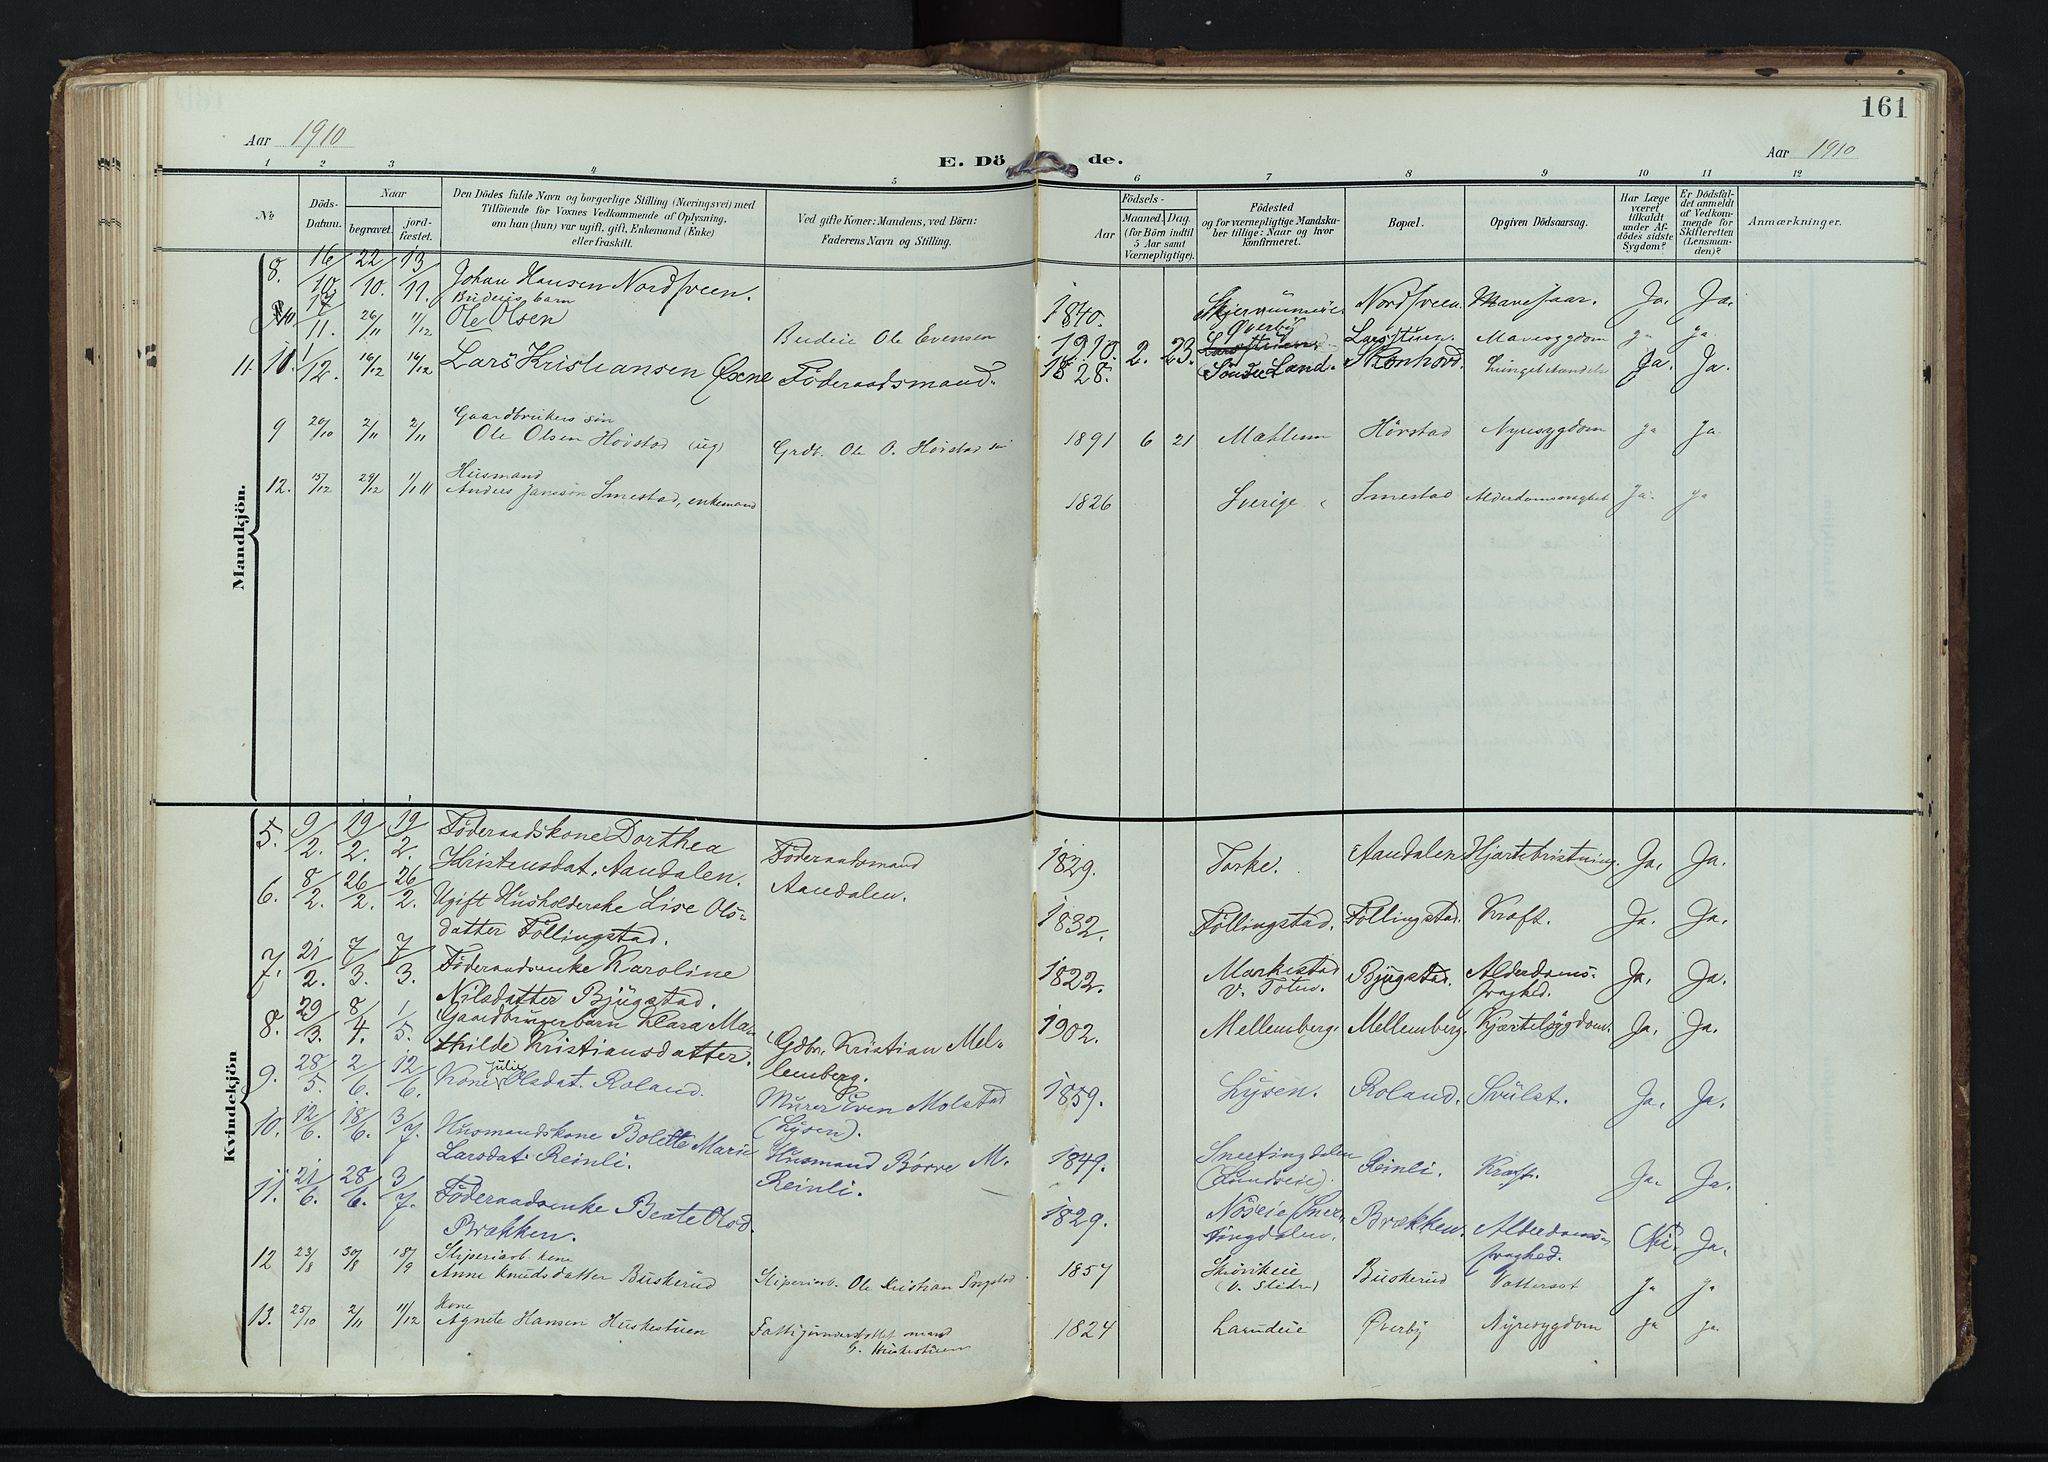 161
Aar 1910
E. Dö de.
Aar 1910
1 2 3 4 5 6 7 8 9 10 11 12
No
Döds-Datum.
Naar
begravet.
jordfæstet.
Den Dödes fulde Navn og borgerlige Stilling (Næringsvei) med
Tilföiende for Voxnes Vedkommende af Oplysning,
om han (hun) var ugift, gift, Enkemand (Enke)
eller fraskilt.
Ved gifte Koner: Mandens, ved Börn:
Faderens Navn og Stilling.
Födsels-
Aar
Maaned. Dag.
(for Börn indtil
5 Aar samt
Værnepligtige).
Födested
og for værnepligtige Mandska-
ber tillige: Naar og hvor
konfirmeret.
Bopæl.
Opgiven Dödsaarsag.
Har Læge
været
tilkaldt
under Af-
dödes sidste
Sygdom?
Er Dödsfal-
det anmeldt
af Vedkom-
mende for
Skifteretten
(Lensman-
den)?
Anmærkninger.
Mandkjön.
8. 16/10 22/10. 13/11. Johan Hansen Nordsveen. 1840. Nordsveen. Mavesaar. Ja. Ja.
17/11. 26/11 11/12 Budeies barn
Ole Olsen Budeie Ole Evensen 1910. 2. 23. Øverby Larsstuen. Mavesygdom ja ja
11. 10. 1/12. 16/12 16/12 Lars Kristiansen Øxne Föderaadsmand. 1828. Søndre Land. Ja. Ja.
9 20/10 2/11 2/11 Gaardbrukers søn
Ole Olsen Hovstad (ug) Grdb. Ole O. Hovstad 1891 6 21 Mæhlum Hovstad Nyresygdom ja Ja
12. 15/12 29/12 1/1 11 Husmand
Anders Jansson Smestad, enkemand 1826 Sverige Smestad Alderdomssvaghet Ja ja
Kvindekjön
5. 9/2. 19/2. 19/2. Föderaadskone Dorthea
Kristensdat. Aandalen. Föderaadsmand
Aandalen. 1829. Torke. Aandalen Hjertebristning. Ja. Ja.
6. 8/2. 26/2. 26/2. Ugift Husholderske Lise Ols-
datter Föllingstad. 1832. Föllingstad. Föllingstad. Kræft. Ja. Ja.
7. 21/2. 7/3. 7/3. Föderaadsenke Karoline
Nilsdatter Bjügstad. 1822. Markestad
V. Toten. Bjügstad. Alderdoms-
svaghed. Ja. Ja.
8. 29/3. 8/4. 1/5. Gaardbrugerbarn Klara Ma-
thilde Kristiansdatter. Gdbr. Kristian Mel-
lemberg. 1902. Mellemberg. Mellemberg. Hjertesygdom. Ja. Ja.
9. 28/5. 2/6. 12/6. Kone Julie Olsdat. Roland. Murer Even Molstad
(Lysen). 1859. Lysen. Roland. Svülst. Ja. Ja.
10. 12/6. 18/6. 3/7. Husmandskone Bolette Marie
Larsdat. Reinli. Husmand Børre M.
Reinli. 1849. Snertingdalen
(Lundseie). Reinli. Kræft. Ja. Ja.
11. 21/6. 28/6. 3/7. Föderaadsenke Beate Olsd.
Brækken. 1829. Nøseie (Sner-
tingdalen. Brækken. Alderdoms-
svaghed. Nei. Ja.
12 23/8 30/8 18/9 Sliperiarb. kone
Anne Knudsdatter Buskerud Sliperiarb. Ole Kristian 1857
(V. Slidre) Buskerud Vattersot Ja ja
13. 25/10 2/11 11/12 Kone
Agnete Hansen Huskestuen Fattigunderstøttet mand
Huskestuen 1824 Landeie Øverby Nyresygdom ja ja.